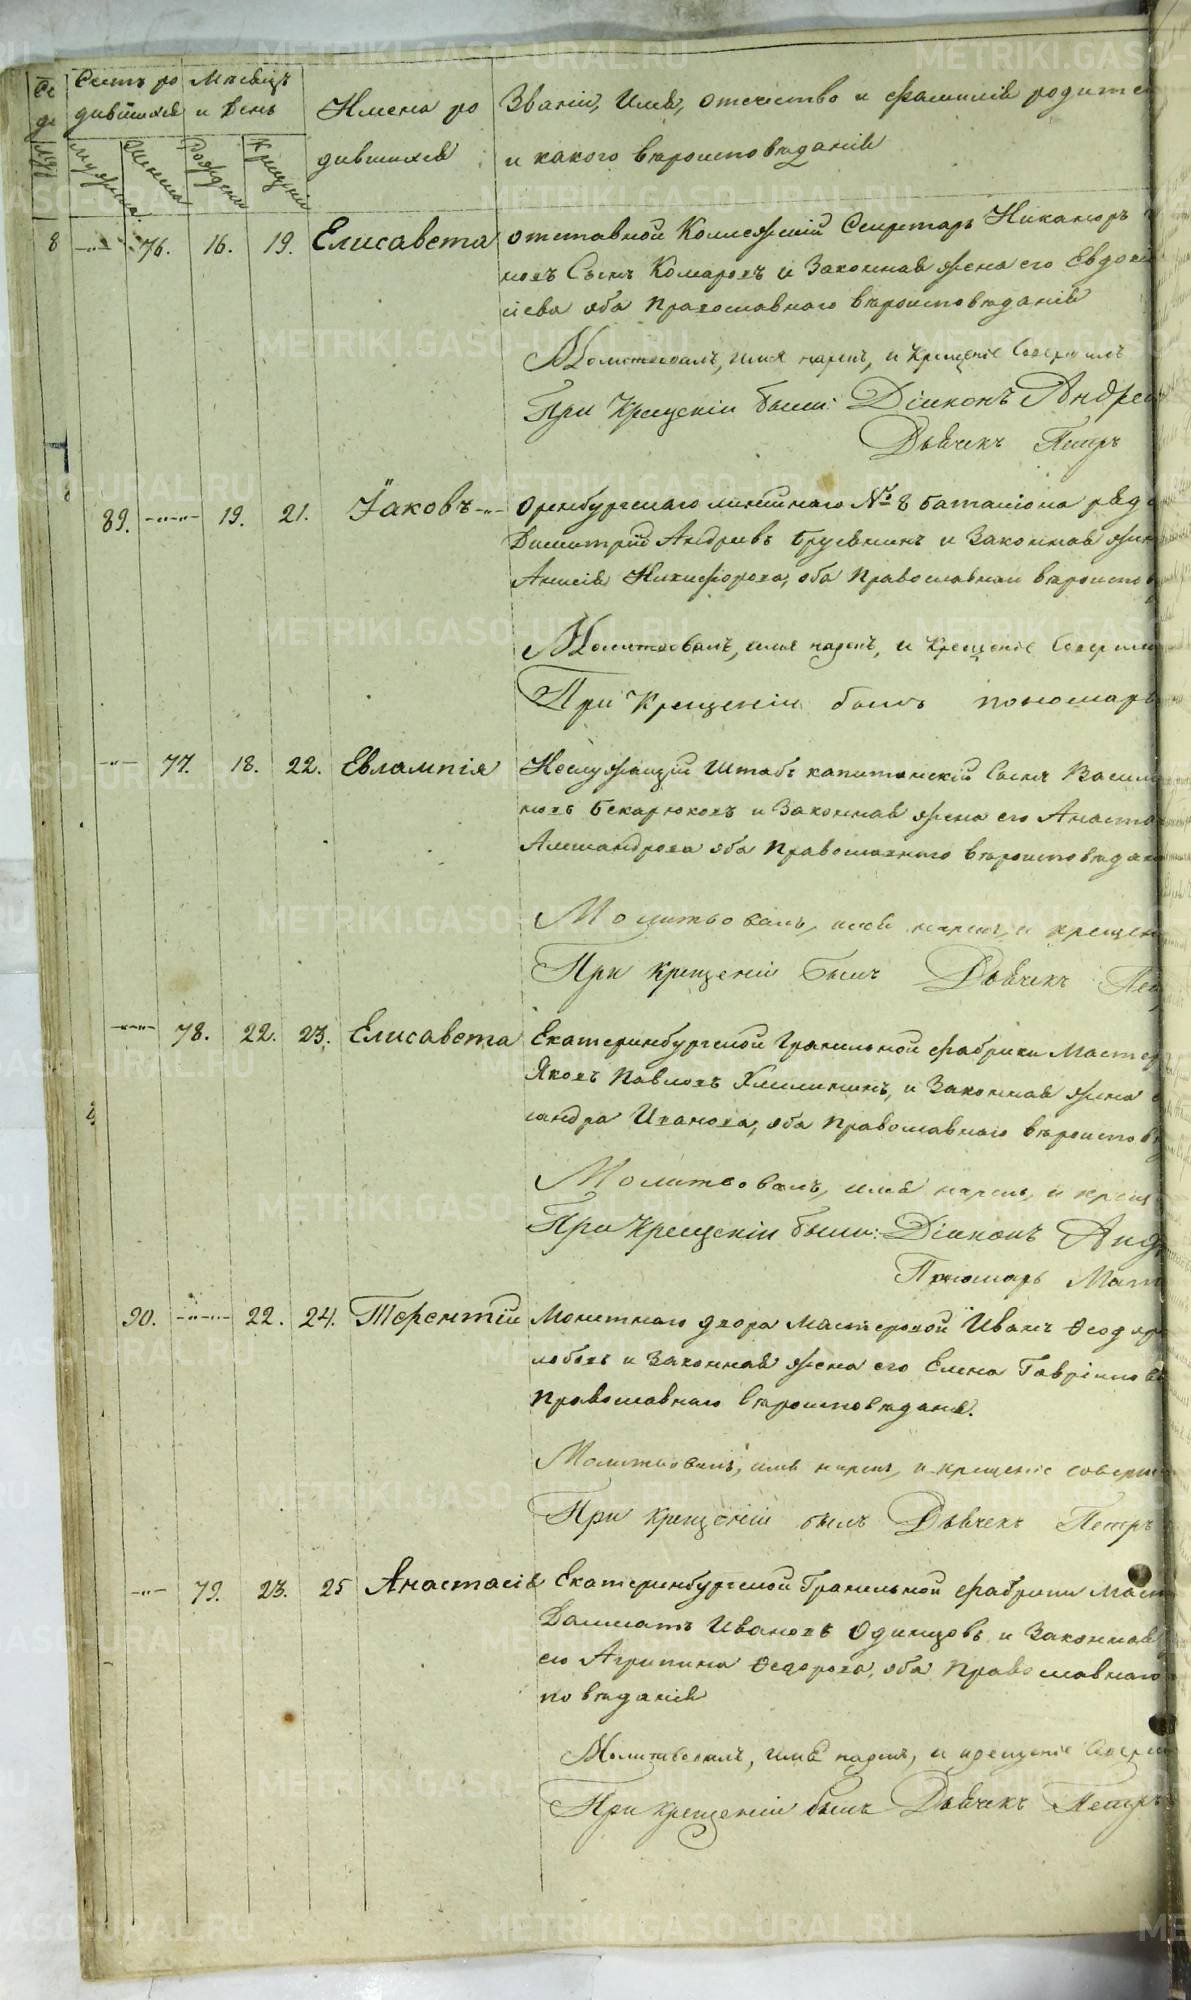 Счетъ ро Месяцъ
дившихся и День
Имена ро
дившихся
Званіе, Имя, отечество и фамилія родите
и какого вѣроисповѣданія
Мужеска
Женска
Рожденія
Крещенія
8 76. 16. 19. Елисавета отставной Коллежскій Секретарь Никаноръ
новъ Сынъ Комаровъ и Законная жена его Евдокія
сіева оба Православнаго вѣроисповѣданія
Молитвовалъ, имя нарекъ, и Крещеніе Совершилъ
При Крещеніи были: Діаконъ Андрей
Дьячекъ Петръ
89. 19. 21. Іаковъ Оренбургскаго линейнаго № 8 баталіона рядо
Димитрій Андреевъ и Законная жена
Никифорова, оба Православнаго вѣроиспов
Молитвовалъ, имя нарекъ, и Крещеніе Соверши
При Крещеніи былъ пономарь
77. 18. 22. Евлампія Неслужащій Штабъ капитанскій Сынъ Васил
новъ Бекарюковъ и Законная жена его Анаста
Александрова оба Православнаго вѣроисповѣдан
Молитвовалъ, имя нарекъ, и крещен
При крещеніи былъ Дьячекъ Пет
78. 22. 23. Елисавета Екатеринбургской Гранильной фабрики Мастер
Яковъ Павловъ Хмелининъ, и Законная жена
сандра Иванова, оба Православнаго вѣроиспов
Молитвовалъ, имя нарекъ, и крещ
При Крещеніи были: Діаконъ Анд
Пономарь Мат
90. 22. 24. Терентій Монетнаго двора Мастеровой Иванъ Ѳеодор
лобовъ и Законная жена его Елена Гаврилова
Православнаго вѣроисповѣданія.
Молитвовалъ, имя нарекъ, и крещеніе соверши
При крещеніи былъ Дьячекъ Петръ
79. 23. 25 Анастасія Екатеринбургской Гранильной фабрики Маст
Далматъ Ивановъ Одинцовъ и Законная
его Агрипина Ѳедорова, оба Православнаго
повѣданія
Молитвовалъ, имя нарекъ, и крещеніе Соверши
При крещеніи былъ Дьячекъ Петръ